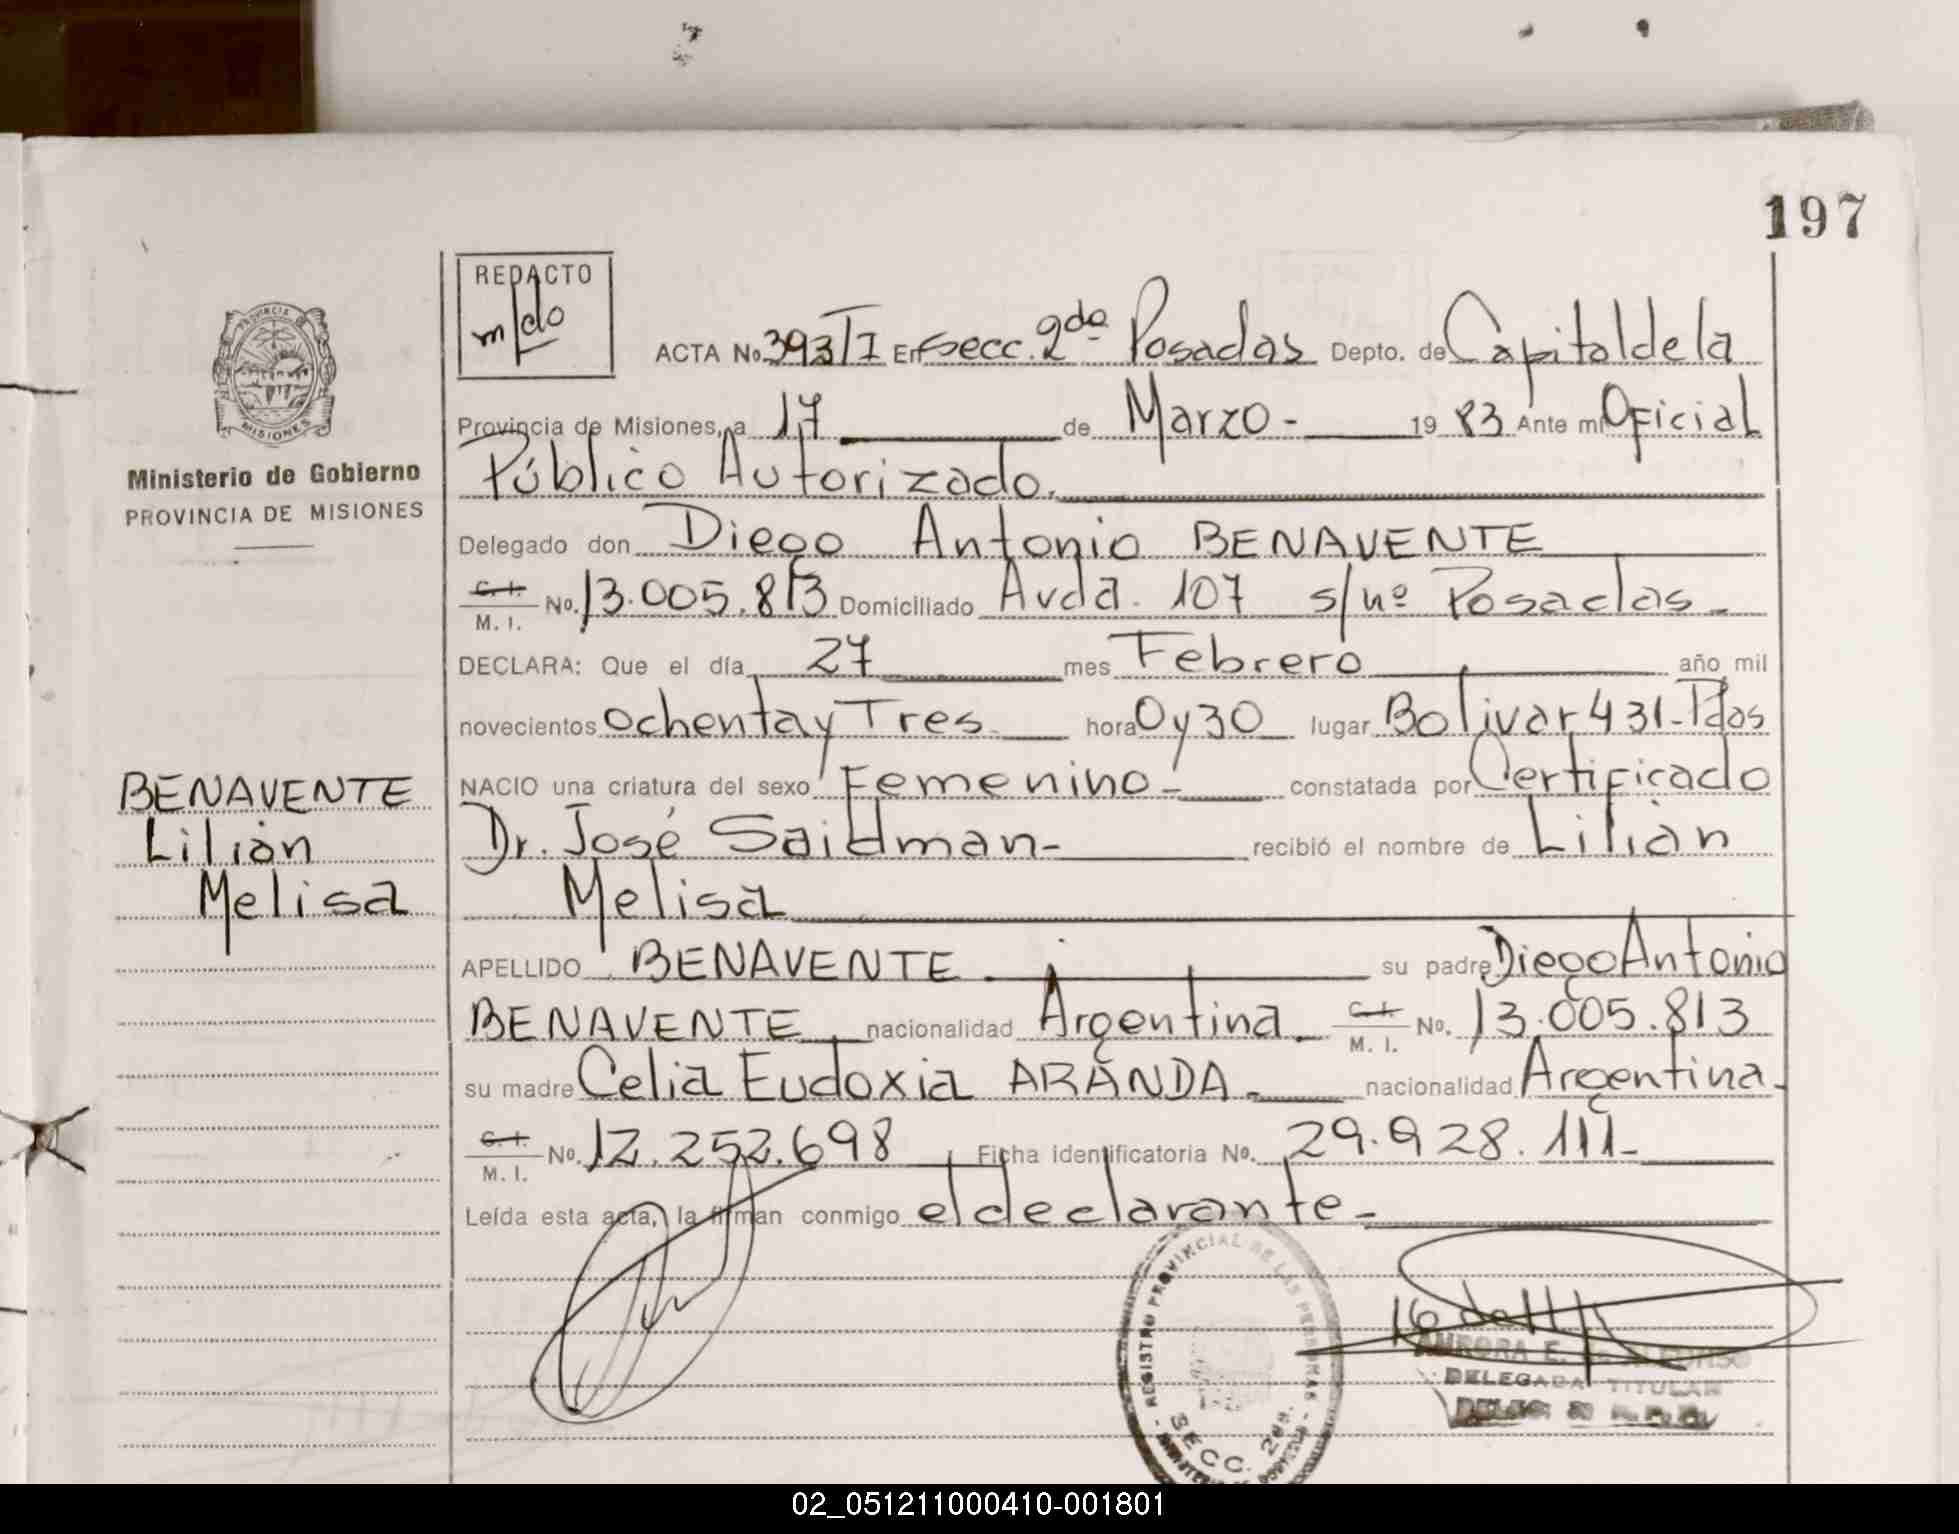 197
REDACTO
ACTA No. 393/I En Secc. 2da Posadas Depto. de Capital de la
PROVINCIA
MISIONES
Provincia de Misiones, a 17 de Marzo - 1983 Ante mi Oficial
Ministerio de Gobierno
PROVINCIA DE MISIONES
Público Autorizado.
Delegado don Diego Antonio BENAVENTE
C. I. M. I. No. 13.005.813 Domiciliado Avda. 107 s/nº Posadas -
DECLARA: Que el día 27 mes Febrero año mil
novecientos ochenta y Tres hora 0 y 30 lugar Bolivar 431 - Pdas
BENAVENTE
Lilián
Melisa
NACIO una criatura del sexo Femenino - constatada por Certificado
Dr. José Saidman - recibió el nombre de Lilián
Melisa
APELLIDO BENAVENTE su padre Diego Antonio
BENAVENTE nacionalidad Argentina C. I. M. I. No. 13.005.813
su madre Celia Eudoxia ARANDA - nacionalidad Argentina -
C. I. M. I. No. 12.252.698 Ficha identificatoria No. 29.928.111 -
Leída esta acta, la firman conmigo el declarante -
REGISTRO PROVINCIAL DE LAS PERSONAS
SECC. 2da.
AURORA E.
DELEGADA TITULAR
02_051211000410-001801